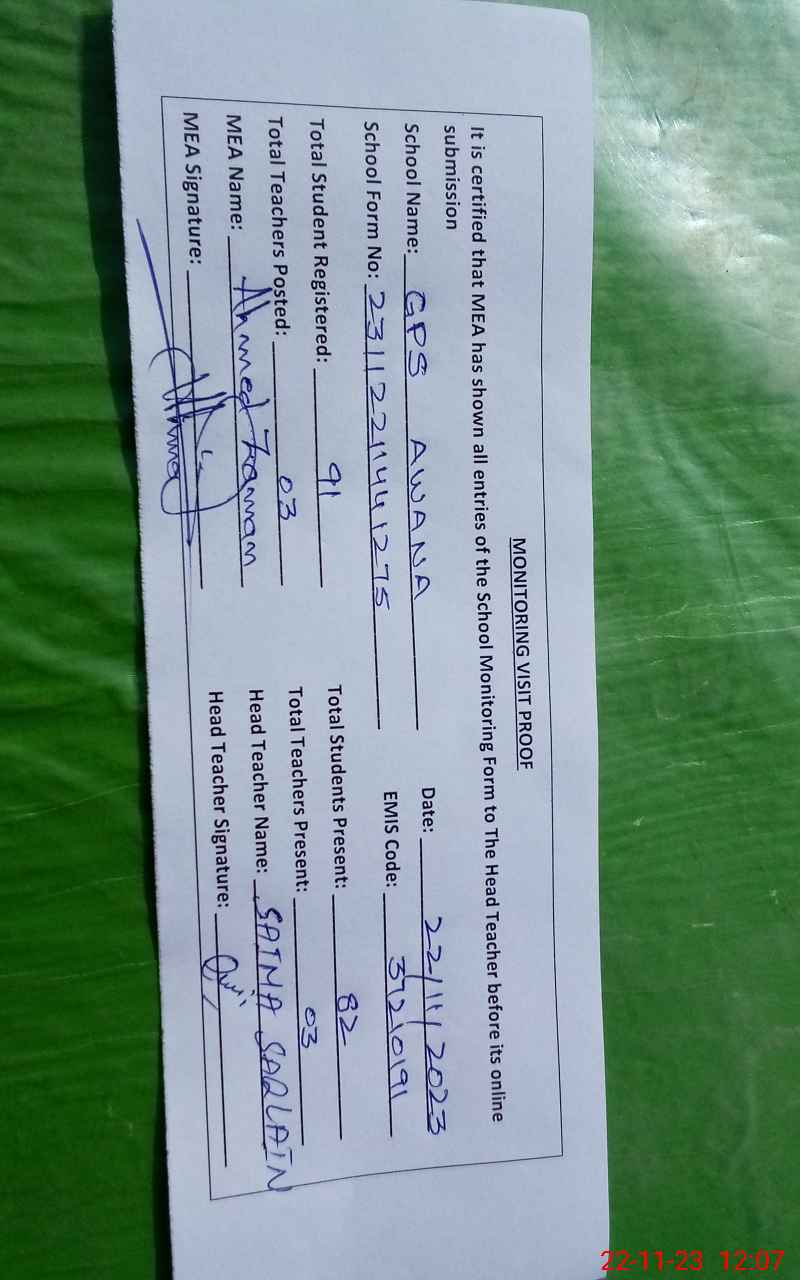 MONITORING VISIT PROOF
It is certified that MEA has shown all entries of the School Monitoring Form to The Head Teacher before its online
submission
School Name: GPS AWANA Date: 22/11/2023
School Form No: 231122114441275 EMIS Code: 37210191
Total Student Registered: 91 Total Students Present: 82
Total Teachers Posted: 03 Total Teachers Present: 03
MEA Name: Ahmed Zaman Head Teacher Name: SAIMA SAQLAIN
MEA Signature: Head Teacher Signature:
22-11-23 12:07